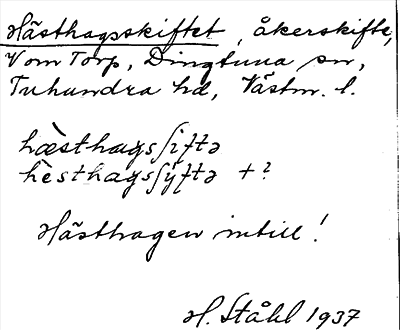 Hästhagsskiftet, åkerskifte,
Vom Torp, Dingtuna sn,
Tuhundra hd, Västm. l.
hæ̀sthagsʃiftə
hèsthagsʃyftə + ?
Hästhagen intill!
H. Ståhl 1937